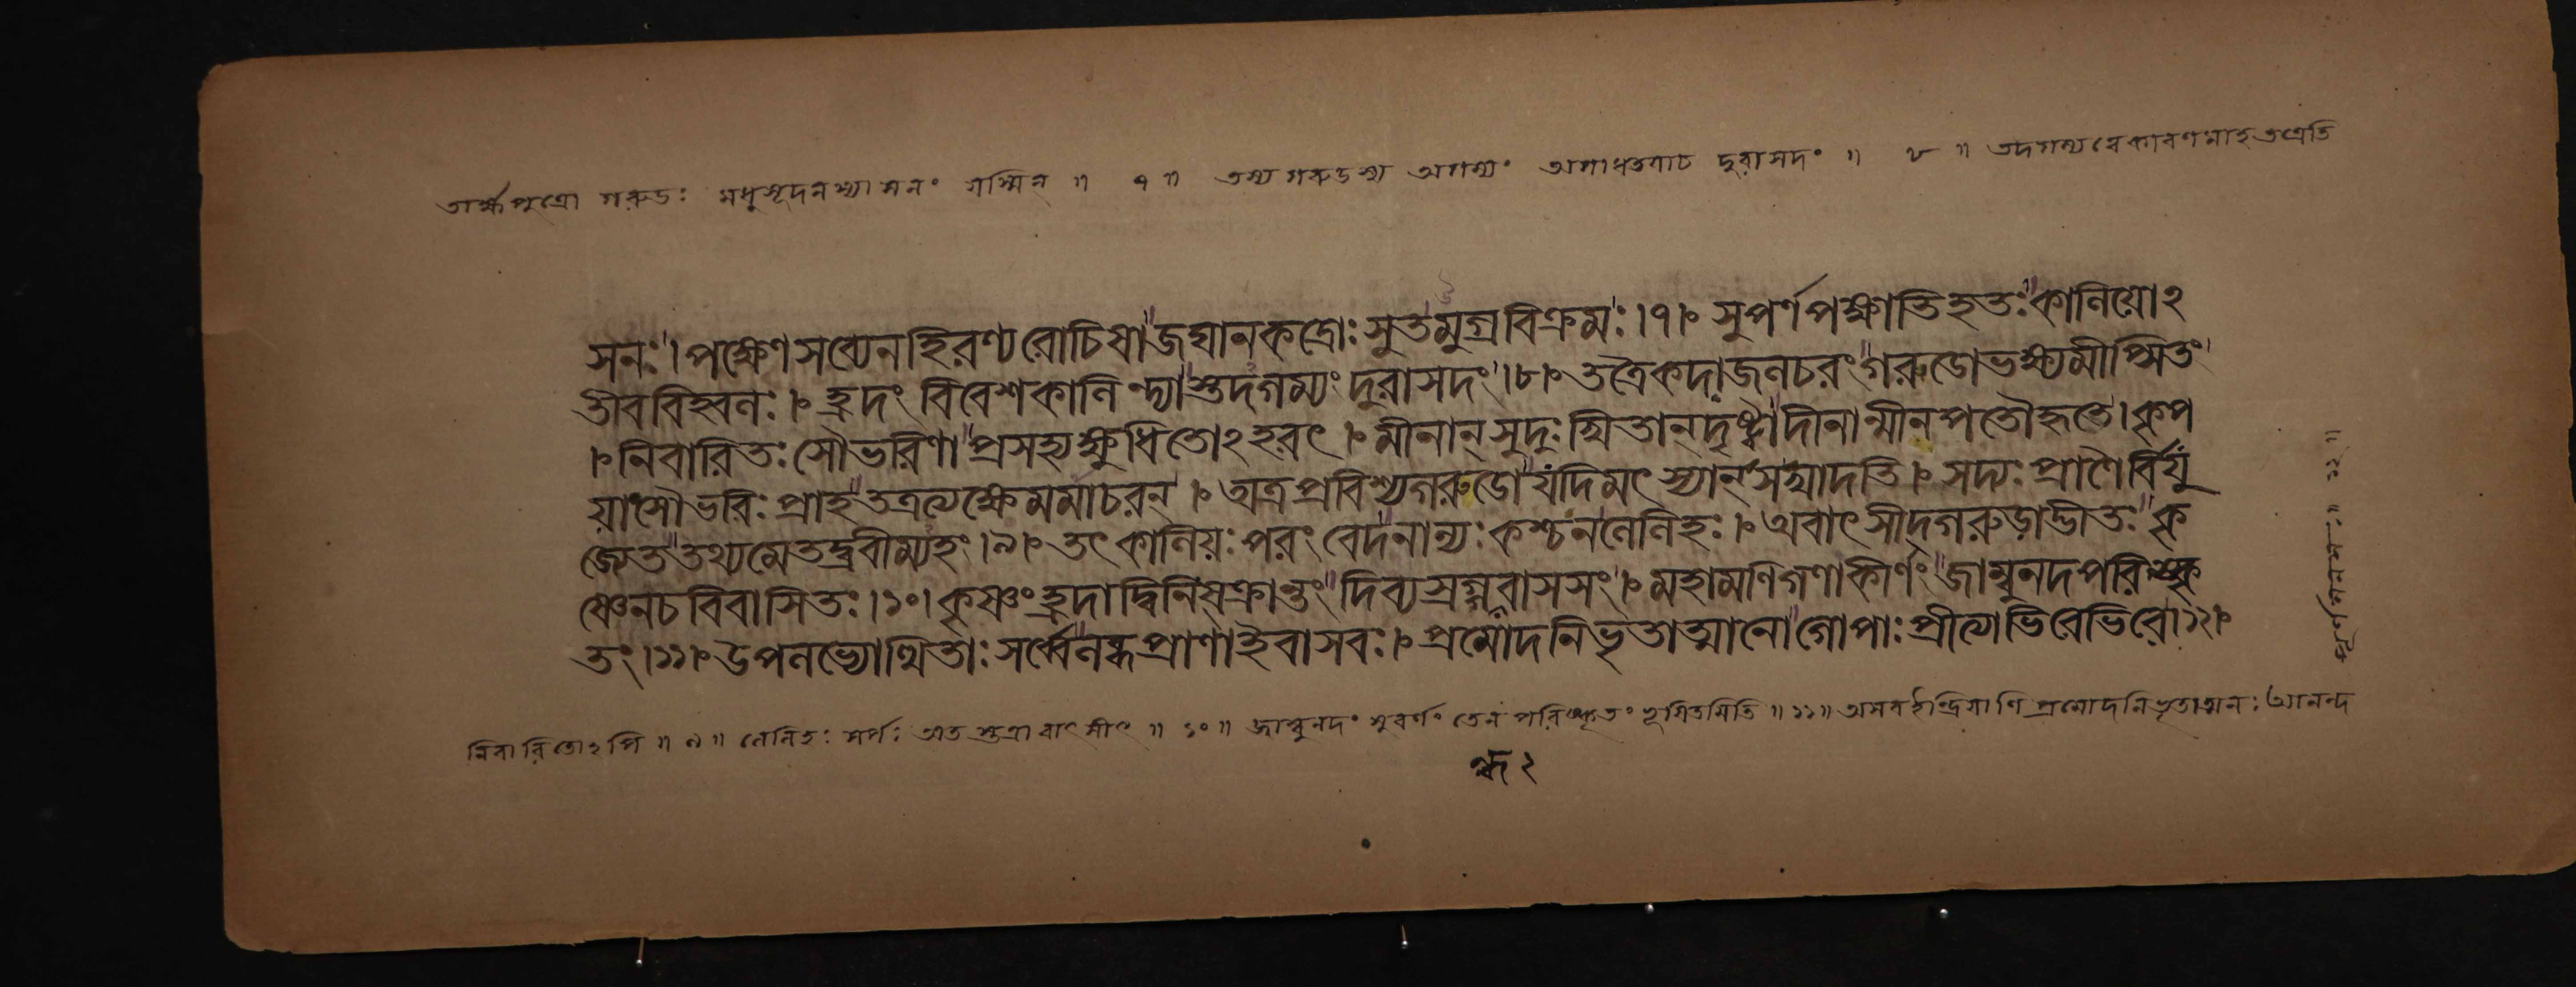 তার্ক্ষপুত্রো গরুডঃ মধুসূদনস্যাসনং যস্মিন্ ॥ ৭ ॥ তস্য গরুডস্য অগম্যং অগাধত্বাচ্চ দুরাসদং ॥ ৮ ॥ তদগম্যত্বে কারণমাহ তত্রেতি
সনঃ। পক্ষেণ সব্যেন হিরণ্যরোচিষা জঘান কদ্রোঃ সুতমুগ্রবিক্রমঃ।৭। সুপর্ণপক্ষাভিহতঃ কালিয়োঽ
তীববিহ্বলঃ। হ্রদং বিবেশ কালিন্দ্যাস্তদগম্যং দুরাসদং।৮। তত্রৈকদা জলচরং গরুডো ভক্ষ্যমীপ্সিতং
। নিবারিতঃ সৌভরিণা প্রসহ্য ক্ষুধিতোঽহরৎ। মীনান্ সুদুঃখিতান্ দৃষ্ট্বা দীনান্মীনপতৌ হতে। কৃপ
য়া সৌভরিঃ প্রাহ তত্রত্যক্ষেমমাচরন্। অত্র প্রবিশ্য গরুডো যদি মৎস্যান্ স খাদতি। সদ্যঃ প্রাণৈর্বিযু
জ্যেত তথ্যমেতদ্ব্রবীম্যহং।৯। তৎ কালিয়ঃ পরং বেদ নান্যঃ কশ্চন লেলিহঃ। অবাৎসীদ্গরুড়াদ্ভীতঃ কৃ
ষ্ণেন চ বিবাসিতঃ।১০। কৃষ্ণং হ্রদাদ্বিনিষ্ক্রান্তং দিব্যস্রগ্গন্ধবাসসং। মহামণিগণাকীর্ণং জাম্বুনদপরিষ্কৃ
তং।১১। উপলভ্যোত্থিতাঃ সর্ব্বে লব্ধপ্রাণা ইবাসবঃ। প্রমোদনিভৃতাত্মানো গোপাঃ প্রীত্যাভিরেভিরে।১২।
নিবারিতোঽপি ॥ ৯ ॥ লেলিহঃ সর্পঃ অতস্তত্রাবাৎসীৎ ॥ ১০ ॥ জাম্বুনদং সুবর্ণং তেন পরিষ্কৃতং ভূষিতমিতি ॥ ১১ ॥ অসব ইন্দ্রিয়াণি প্রমোদনিভৃতাত্মনঃ আনন্দ
পূর্ণমনসঃ ॥ ১২ ॥